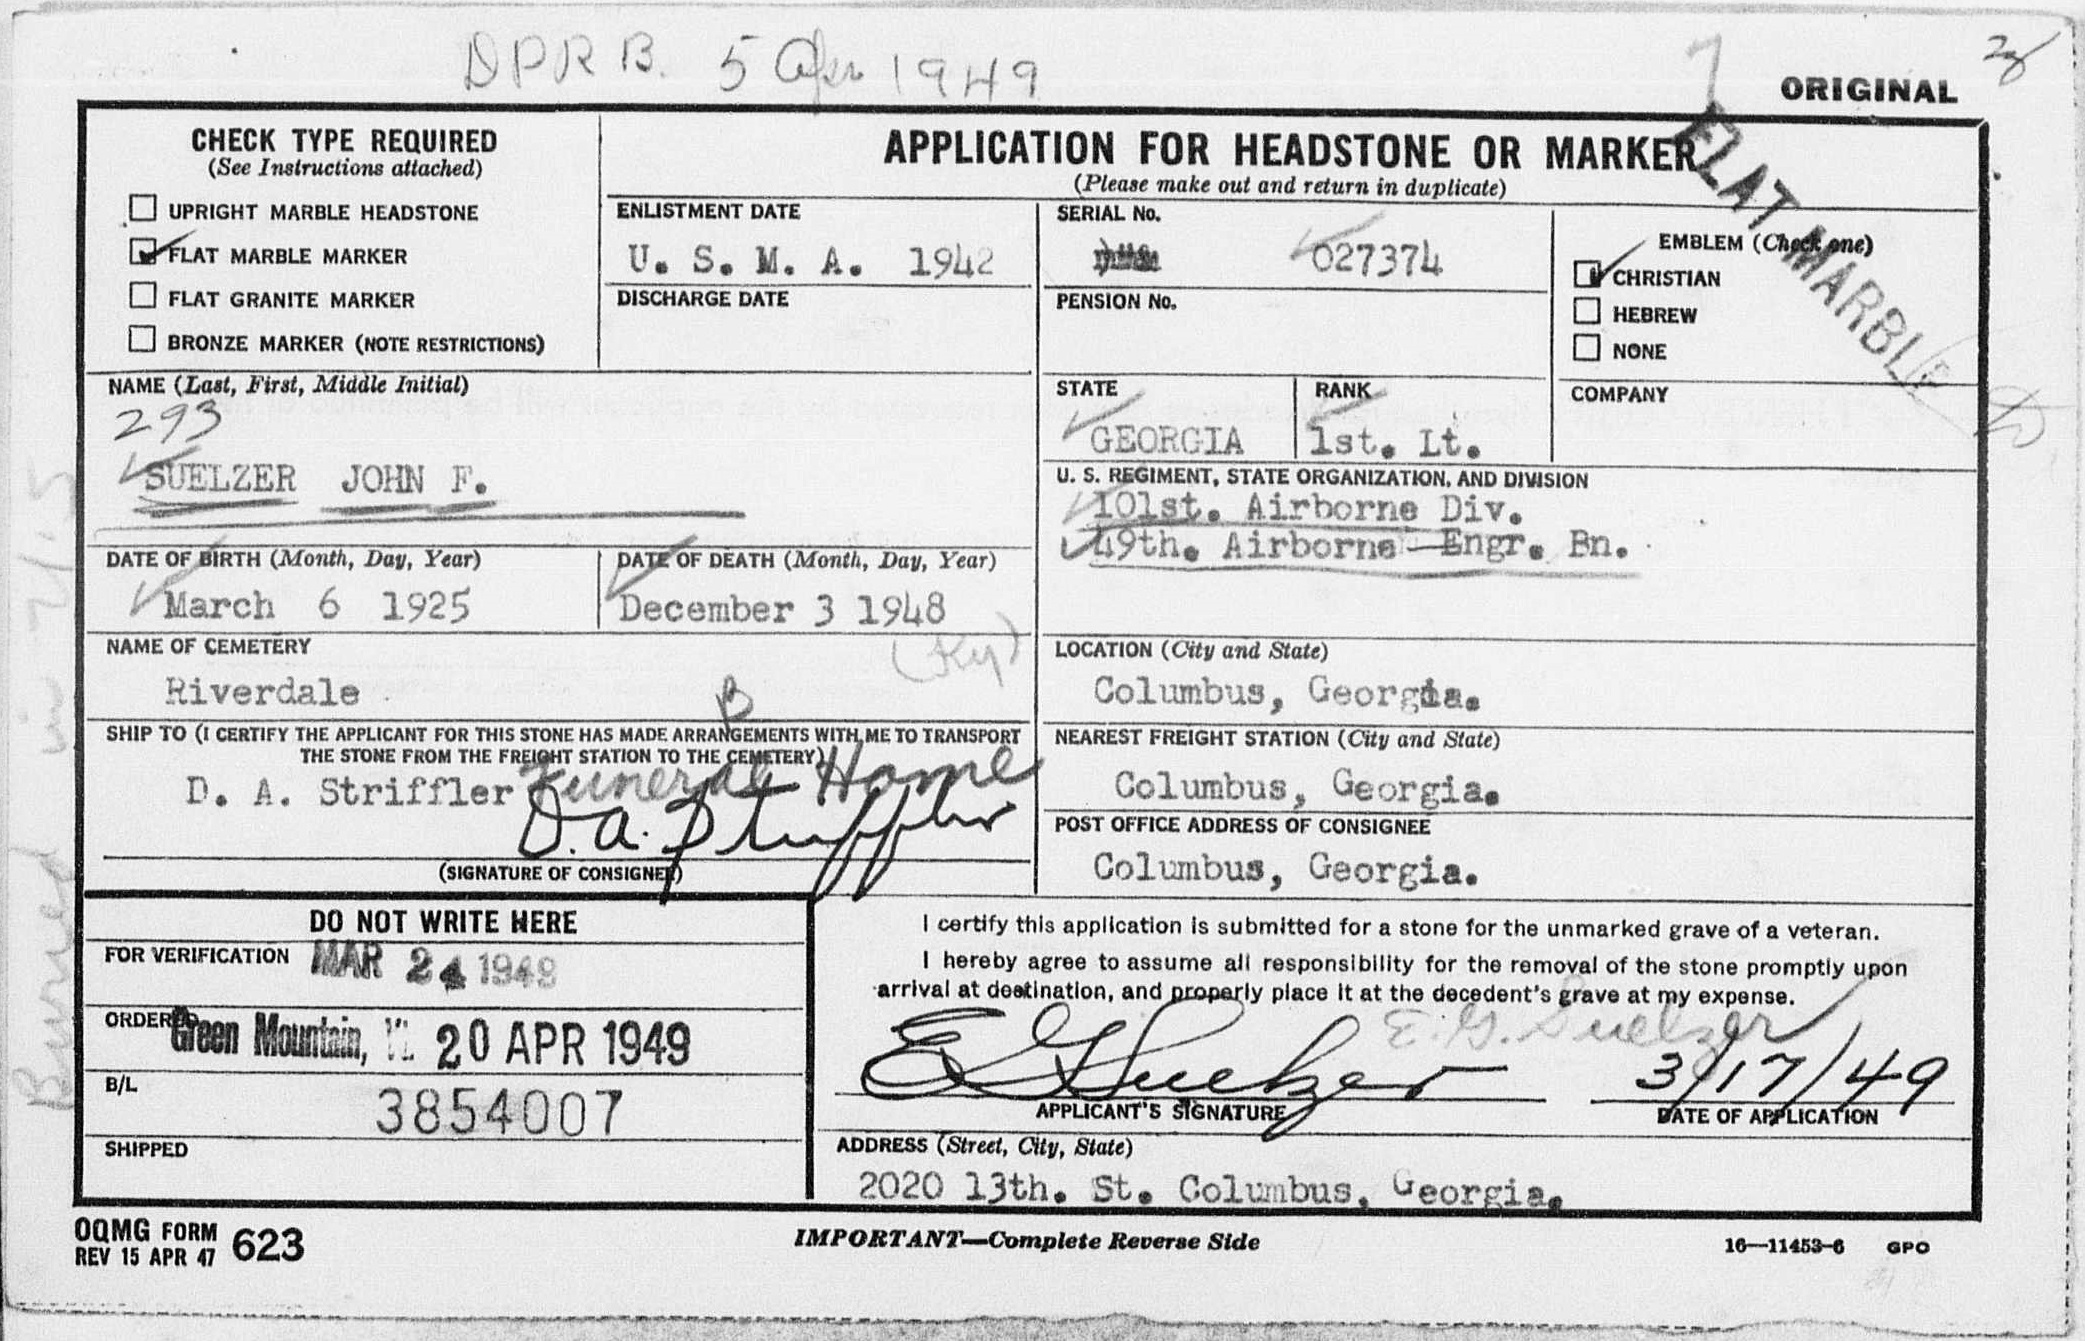 DPRB. 5 Apr 1949
ORIGINAL
FLAT MARBLE
CHECK TYPE REQUIRED
(See Instructions attached)
UPRIGHT MARBLE HEADSTONE
FLAT MARBLE MARKER
FLAT GRANITE MARKER
BRONZE MARKER (NOTE RESTRICTIONS)
APPLICATION FOR HEADSTONE OR MARKER
(Please make out and return in duplicate)
ENLISTMENT DATE
U. S. M. A. 1942
DISCHARGE DATE
SERIAL No.
027374
PENSION No.
EMBLEM (Check one)
CHRISTIAN
HEBREW
NONE
NAME (Last, First, Middle Initial)
293
SUELZER JOHN F.
STATE
GEORGIA
RANK
1st. Lt.
COMPANY
U. S. REGIMENT, STATE ORGANIZATION, AND DIVISION
101st. Airborne Div.
49th. Airborne Engr. Bn.
DATE OF BIRTH (Month, Day, Year)
March 6 1925
DATE OF DEATH (Month, Day, Year)
December 3 1948
NAME OF CEMETERY
(Ky)
Riverdale
LOCATION (City and State)
Columbus, Georgia.
SHIP TO (I CERTIFY THE APPLICANT FOR THIS STONE HAS MADE ARRANGEMENTS WITH ME TO TRANSPORT
THE STONE FROM THE FREIGHT STATION TO THE CEMETERY)
D. A. Striffler Funeral Home
D. A. Striffler
(SIGNATURE OF CONSIGNEE)
NEAREST FREIGHT STATION (City and State)
Columbus, Georgia.
POST OFFICE ADDRESS OF CONSIGNEE
Columbus, Georgia.
DO NOT WRITE HERE
FOR VERIFICATION MAR 24 1949
ORDERED Green Mountain, 20 APR 1949
B/L
3854007
SHIPPED
I certify this application is submitted for a stone for the unmarked grave of a veteran.
I hereby agree to assume all responsibility for the removal of the stone promptly upon
arrival at destination, and properly place it at the decedent's grave at my expense.
E. G. Suelzer
E G Suelzer 3/17/49
APPLICANT'S SIGNATURE
DATE OF APPLICATION
ADDRESS (Street, City, State)
2020 13th. St. Columbus, Georgia.
OQMG FORM 623
REV 15 APR 47
IMPORTANT—Complete Reverse Side
16—11453-6 GPO
Buried in